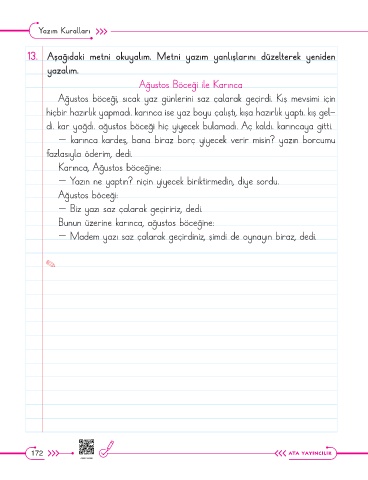 Yazım Kuralları
13. Aşağıdaki metni okuyalım. Metni yazım yanlışlarını düzelterek yeniden
yazalım.
Ağustos Böceği ile Karınca
Ağustos böceği, sıcak yaz günlerini saz çalarak geçirdi. Kış mevsimi için
hiçbir hazırlık yapmadı. karınca ise yaz boyu çalıştı, kışa hazırlık yaptı. kış gel-
di. kar yağdı. ağustos böceği hiç yiyecek bulamadı. Aç kaldı. karıncaya gitti.
— karınca kardeş, bana biraz borç yiyecek verir misin? yazın borcumu
fazlasıyla öderim, dedi.
Karınca, Ağustos böceğine:
— Yazın ne yaptın? niçin yiyecek biriktirmedin, diye sordu.
Ağustos böceği:
— Biz yazı saz çalarak geçiririz, dedi.
Bunun üzerine karınca, ağustos böceğine:
— Madem yazı saz çalarak geçirdiniz, şimdi de oynayın biraz, dedi.
172
ATA YAYINCILIK